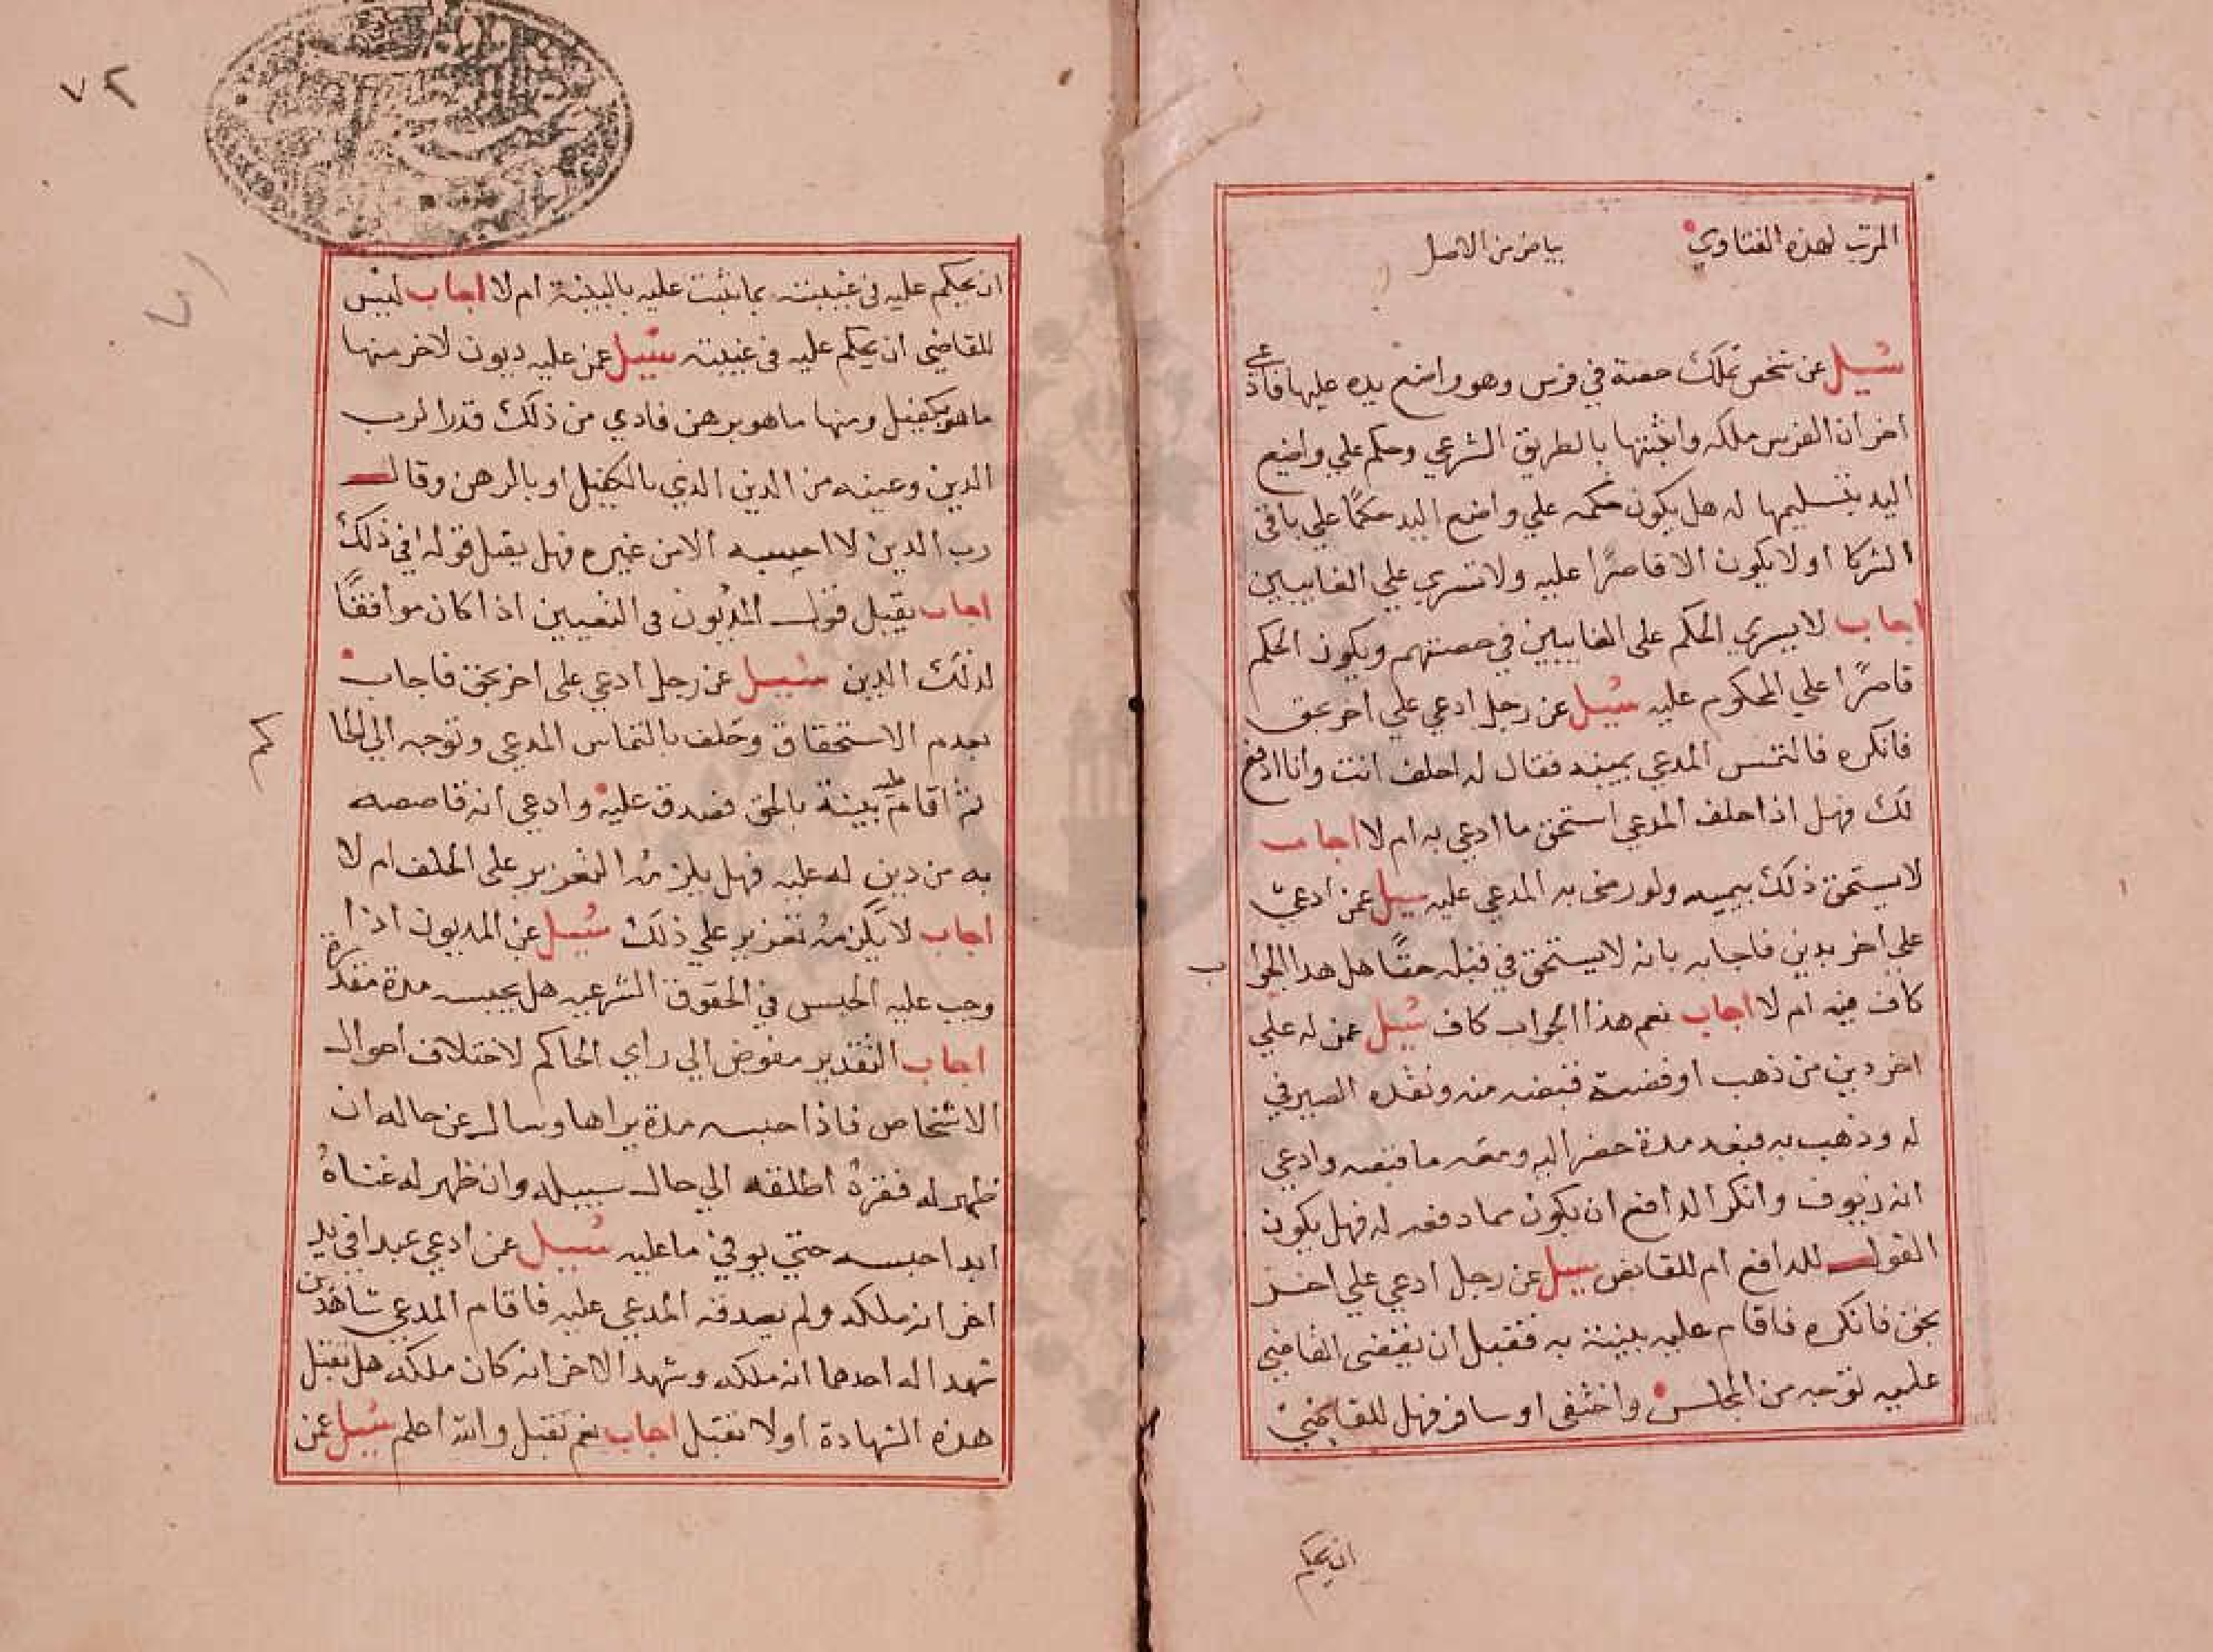 المرتب لهذه الفتاوي بياض من الاصل
سئيل عن شخص تملك حصة في فرس وهو واضع يده عليها فادعي
اخر ان الفرس ملكه واثبتها بالطريق الشرعي وحكم علي واضع
اليد بتسليمها له هل يكون حكمه علي واضع اليد حكمًا علي باقي
الشركا او لا يكون الا قاصرًا عليه ولا تسري علي الغايبين
اجاب لا يسري الحكم على الغايبين في حصتهم ويكون الحكم
قاصرًا علي المحكوم عليه سئيل عن رجل ادعي علي اخر بحق
فانكره فالتمس المدعي يمينه فقال له احلف انت وانا ادفع
لك فهل اذا حلف المدعي استحق ما ادعي به ام لا اجاب
لا يستحق ذلك بيمينه ولو رضى به المدعي عليه سيل عمن ادعي
علي اخر بدين فاجابه بانه لا يستحق في قبله حقًا هل هذا الجواب
كاف منه ام لا اجاب نعم هذا الجواب كاف سئيل عمن له علي
اخر دين من ذهب او فضة فقبضه منه ونقده الصيرفي
له وذهب به فبعد مدة حضر اليه ومعه ما قبضه وادعي
انه زيوف وانكر الدافع ان يكون مما دفعه له فهل يكون
القول للدافع ام للقابض سيل عن رجل ادعي علي اخر
بحق فانكره فاقام عليه بينة به فقبل ان يقضى القاضي
عليه توجه من المجلس واختفى او سافر فهل للقاضي
ان يحكم
٧٢
ان يحكم عليه في غيبته بما يثبت عليه بالبينة ام لا اجاب ليس
للقاضي ان يحكم عليه في غيبته سئيل عمن عليه ديون لاخر منها
ما هو بكفيل ومنها ما هو برهن فادي من ذلك قدرا لرب
الدين وعينه من الدين الذي بالكفيل او بالرهن وقال
رب الدين لا احسبه الا من غيره فهل يقبل قوله في ذلك
اجاب يقبل قول المديون في التعيين اذا كان موافقًا
لذلك الدين سئيل عن رجل ادعي على اخر بحق فاجاب
بعدم الاستحقاق وحلف بالتماس المدعي وتوجه الي الحاكم
ثم اقام عليه بينة بالحق فصدق عليه وادعي انه قاصصه
به من دين له عليه فهل يلزمه التعزير على الحلف ام لا
اجاب لا يلزمه تعزير علي ذلك سئيل عن المديون اذا
وجب عليه الحبس في الحقوق الشرعيه هل يحبسه مدة مقدرة
اجاب التقدير مفوض الي راي الحاكم لاختلاف احوال
الاشخاص فاذا حبسه مدة يراها وسال عن حاله ان
ظهر له فقره اطلقه الي حال سبيله وان ظهر له غناه
ابدا حبسه حتي يوفي ما عليه سئيل عمن ادعي عبدا في يد
اخر انه ملكه ولم يصدقه المدعي عليه فاقام المدعي شاهدين
شهد اله احدهما انه ملكه وشهد الاخر انه كان ملكه هل تقبل
هذه الشهادة اولا تقبل اجاب نعم تقبل والله اعلم سئيل عمن